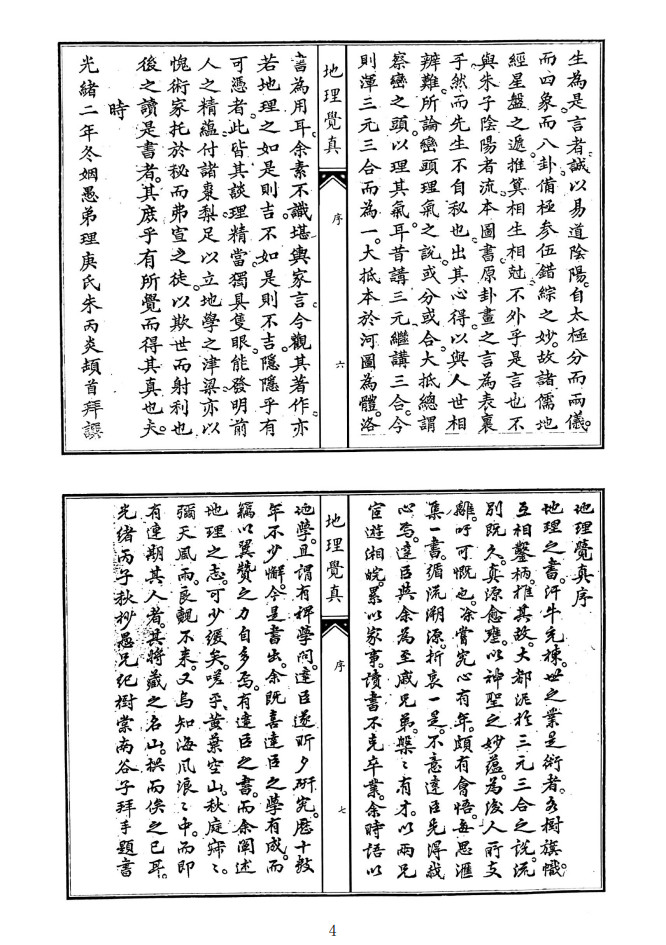 生為是言者誠以易道陰陽。自太極分而兩儀。
而四象而八卦備極參伍錯綜之妙。故諸儒地
經星盤之遞推算相生相尅。不外乎是言也不
與朱子陰陽者流。本圖書原卦畫之言為表裏
乎然而先生不自秘也。出其心得。以與人世相
辨難。所論巒頭理氣之說。或分或合。大抵總謂
察巒之頭以理其氣耳昔講三元。繼講三合。今
則渾三元三合而為一。大抵本於河圖為體。洛
地理覺真
序
六
書為用耳。余素不識堪輿家言。今觀其著作。亦
若地理之如是則吉。不如是則不吉。隱隱乎有
可憑者。此皆其談理精當。獨具隻眼。能發明前
人之精蘊。付諸棗梨。足以立地學之津梁。亦以
愧術家托於秘而弗宣之徒。以欺世而射利也
後之讀是書者。其庶乎有所覺而得其真也夫
時
光緒二年冬姻愚弟理庚氏朱丙炎頓首拜譔
地理覺真序
地理之書。汗牛充棟。世之業是術者。各樹旗幟。
互相鑿枘。推其故。大都泥於三元三合之說。流
別既久。真源愈壅。以神聖之妙蘊。為後人所支
離。吁可慨也。余嘗究心有年。頗有會悟。每思滙
集一書。循流溯源。折衷一是。不意達臣先得我
心焉。達臣與余為至戚兄弟。槃槃有才。以兩兄
宦遊湘皖。累以家事。讀書不克卒業。余時語以
地理覺真
序
七
地學。且謂有裨學問。達臣遂昕夕研究。歷十數
年不少懈。今是書出。余既喜達臣之學有成。而
竊以翼贊之力自多焉。有達臣之書。而余闡述
地理之志。可少緩矣。嗟乎。黃葉空山。秋庭寂寂。
彌天風雨。良覿不來。又烏知海風浪浪中。而即
有達期其人者。其將藏之名山。拱而俟之已耳。
光緒丙子秋杪愚兄紀樹棠芮谷子拜手題書
4